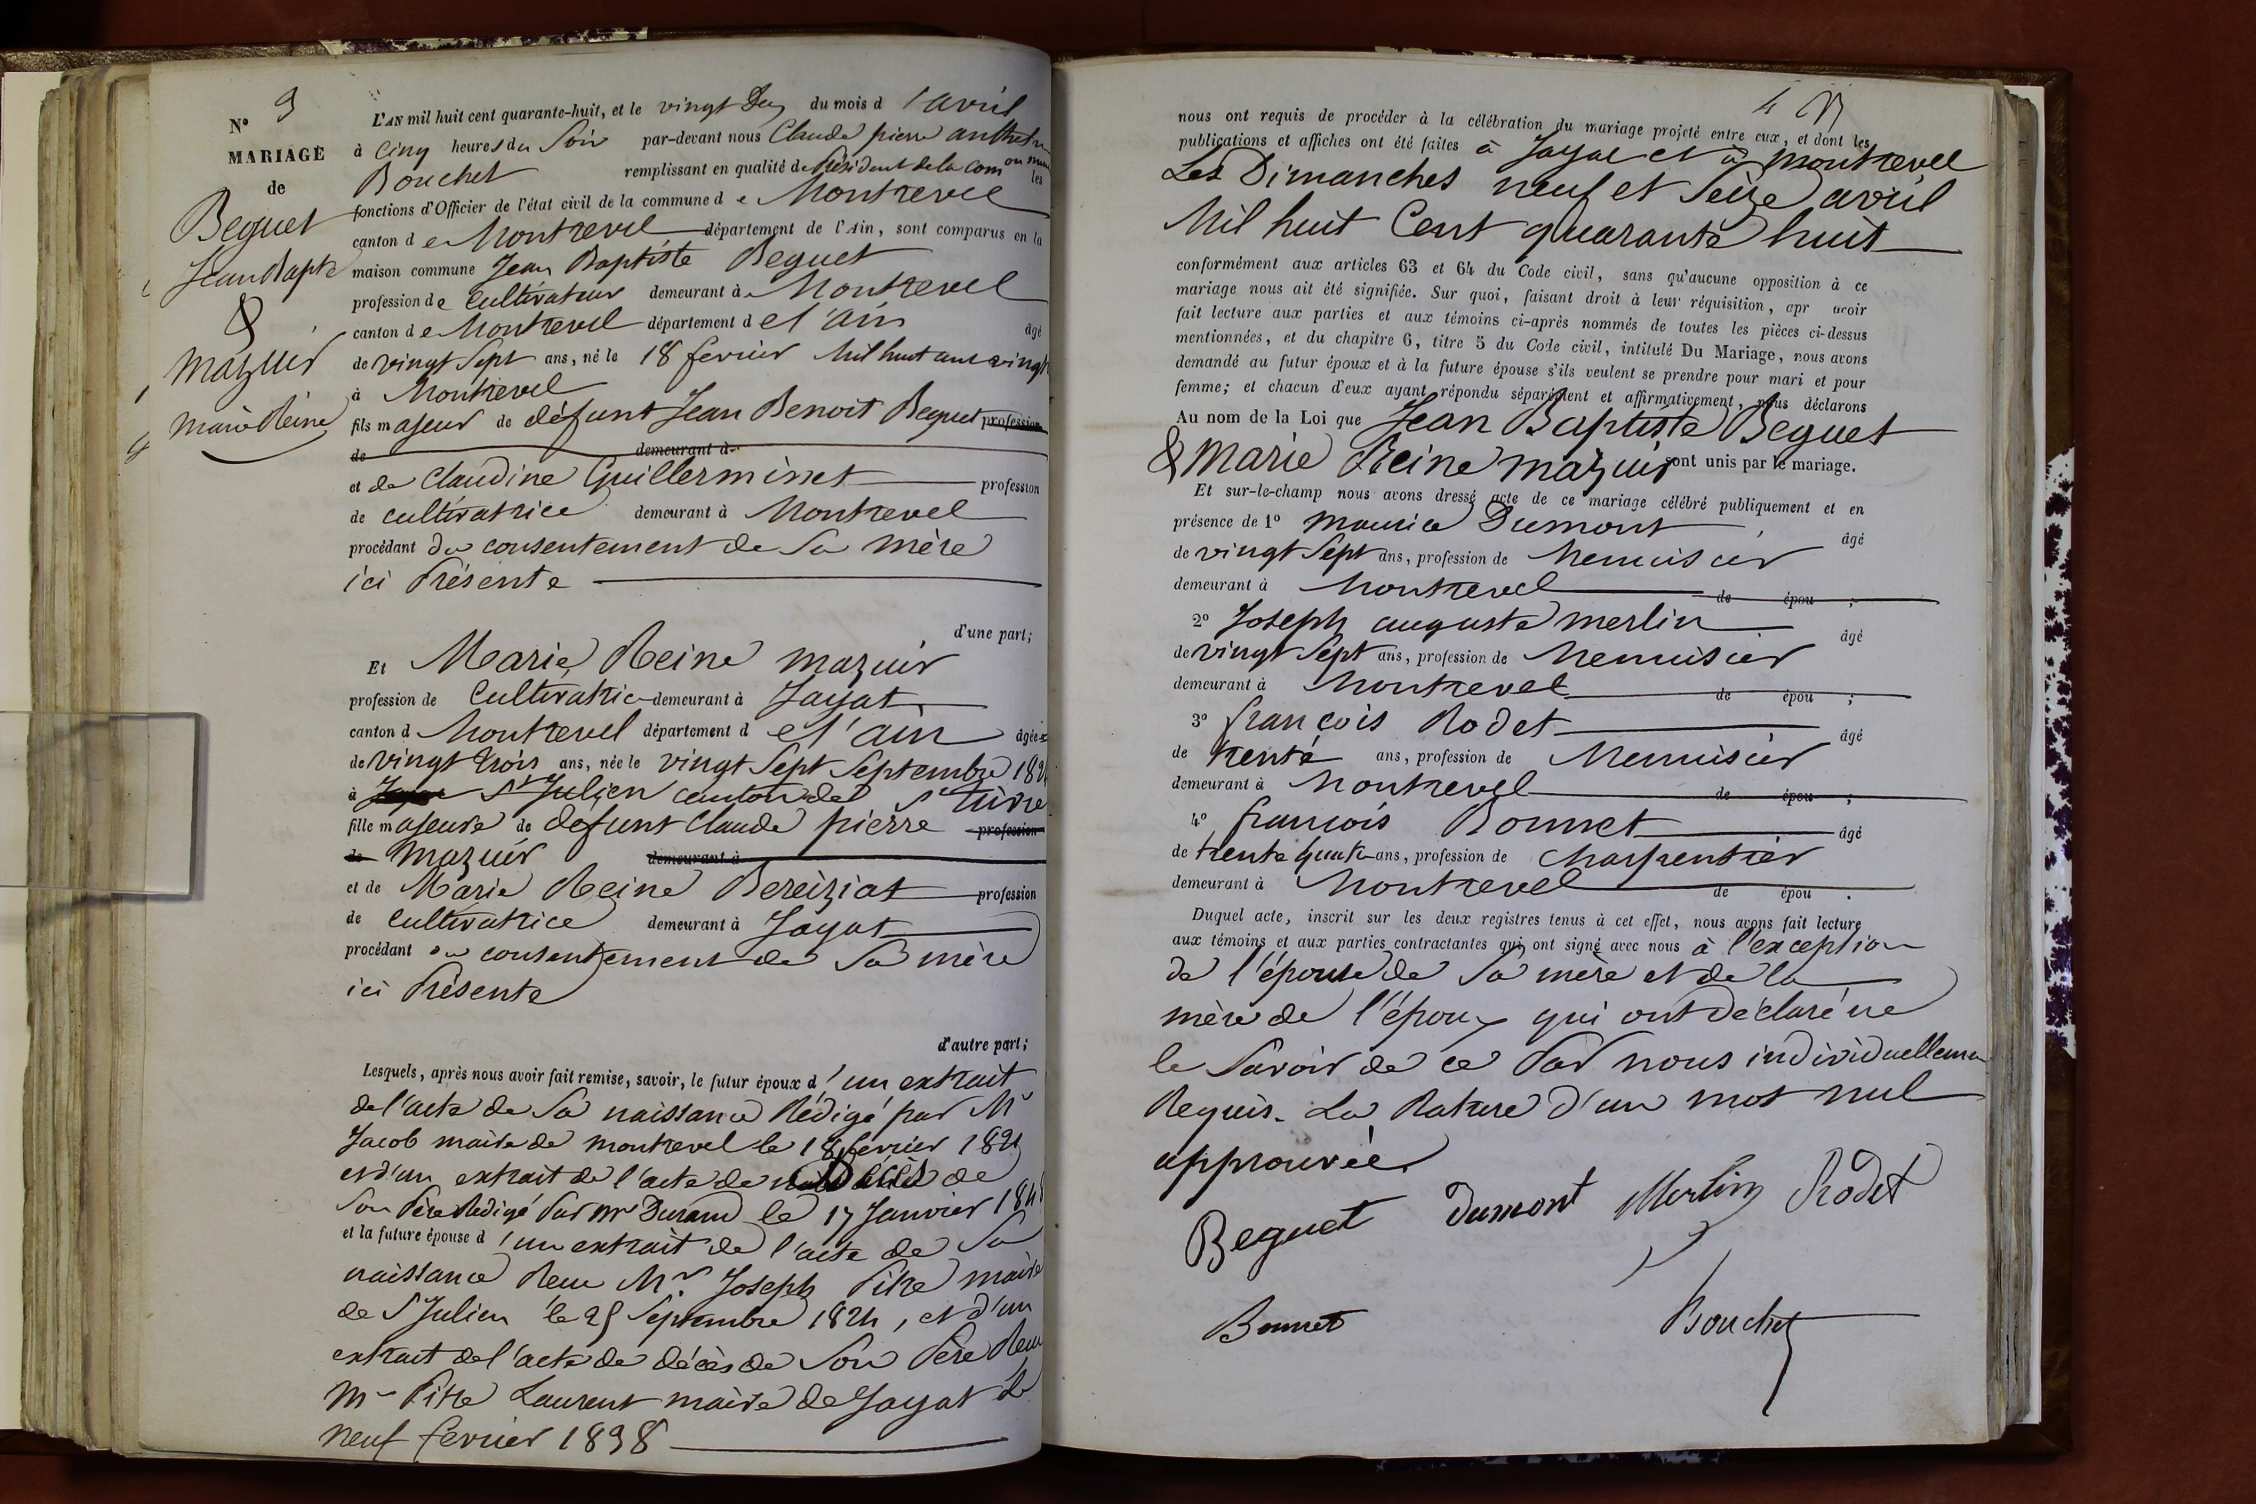 N° 9
MARIAGE
de
Beguet
Jean Bapte
&
Mazuir
Marie Reine
L'AN mil huit cent quarante-huit, et le vingt Six du mois d'avril
à Cinq heures du Soir par-devant nous Claude pierre anthelme
Bouchet remplissant en qualité de Président de la com on mun les
fonctions d'Officier de l'état civil de la commune de Montrevel
canton de Montrevel département de l'Ain, sont comparus en la
maison commune Jean Baptiste Beguet
profession de Cultivateur demeurant à Montrevel
canton de Montrevel département de l'ain âgé
de vingt Sept ans, né le 18 fevrier Mil huit cent vingt
à Montrevel
fils majeur de défunt Jean Benoit Beguet profession
de demeurant à
et de Claudine Guillerminet profession
de cultivatrice demeurant à Montrevel
procédant du consentement de Sa mère
ici Présente
d'une part;
Et Marie Reine mazuir
profession de Cultivatrice demeurant à Jayat
canton d Montrevel département de l'ain âgée
de vingt trois ans, née le vingt Sept Septembre 1824
à St Julien canton de St
fille majeure de defunt Claude pierre profession
de Mazuir demeurant à
et de Marie Reine Bereiziat profession
de Cultivatrice demeurant à Jayat
procédant du consentement de Sa mère
ici Présente
d'autre part;
Lesquels, après nous avoir fait remise, savoir, le futur époux d'un extrait
de l'acte de Sa naissance Rédigé par Mr
Jacob maire de montrevel le 18 fevrier 1821
et d'un extrait de l'acte de Décès de
Son Père Redigé Par Mr Durand le 17 Janvier
et la future épouse d'un extrait de l'acte de Sa
naissance Reçu Mr Joseph Pitre maire
de St Julien le Septembre 1824, et d'un
extrait de l'acte de décès de Son Père Reçu
Mr Pitre Laurent maire de Jayat le
neuf fevrier 1838
4
nous ont requis de procéder à la célébration du mariage projeté entre eux, et dont les
publications et affiches ont été faites à Jayat et à montrevel
Les Dimanches neuf et Seize avril
Mil huit Cent quarante huit
conformément aux articles 63 et 64 du Code civil, sans qu'aucune opposition à ce
mariage nous ait été signifiée. Sur quoi, faisant droit à leur réquisition, apr avoir
fait lecture aux parties et aux témoins ci-après nommés de toutes les pièces ci-dessus
mentionnées, et du chapitre 6, titre 5 du Code civil, intitulé Du Mariage, nous avons
demandé au futur époux et à la future épouse s'ils veulent se prendre pour mari et pour
femme; et chacun d'eux ayant répondu séparément et affirmativement, nous déclarons
Au nom de la Loi que Jean Baptiste Beguet
& Marie Reine mazuir sont unis par le mariage.
Et sur-le-champ nous avons dressé acte de ce mariage célébré publiquement et en
présence de 1° maurice Dumont âgé
de vingt Sept ans, profession de Menuisier
demeurant à Montrevel de épou ;
2° Joseph auguste merlin âgé
de vingt Sept ans, profession de Menuisier
demeurant à Montrevel de épou ;
3° françois Rodet âgé
de trente ans, profession de Menuisier
demeurant à Montrevel de épou ;
4° françois Bonnet âgé
de trente quatre ans, profession de Charpentier
demeurant à Montrevel de épou .
Duquel acte, inscrit sur les deux registres tenus à cet effet, nous avons fait lecture
aux témoins et aux parties contractantes qui ont signé avec nous à l'exception
de l'épouse de Sa mère et de la
mère de l'époux qui ont déclaré ne
le Savoir de ce Par nous individuellement
Requis. La Rature d'un mot nul
approuvée
Beguet Dumont Merlin Rodet
Bonnet Bouchet